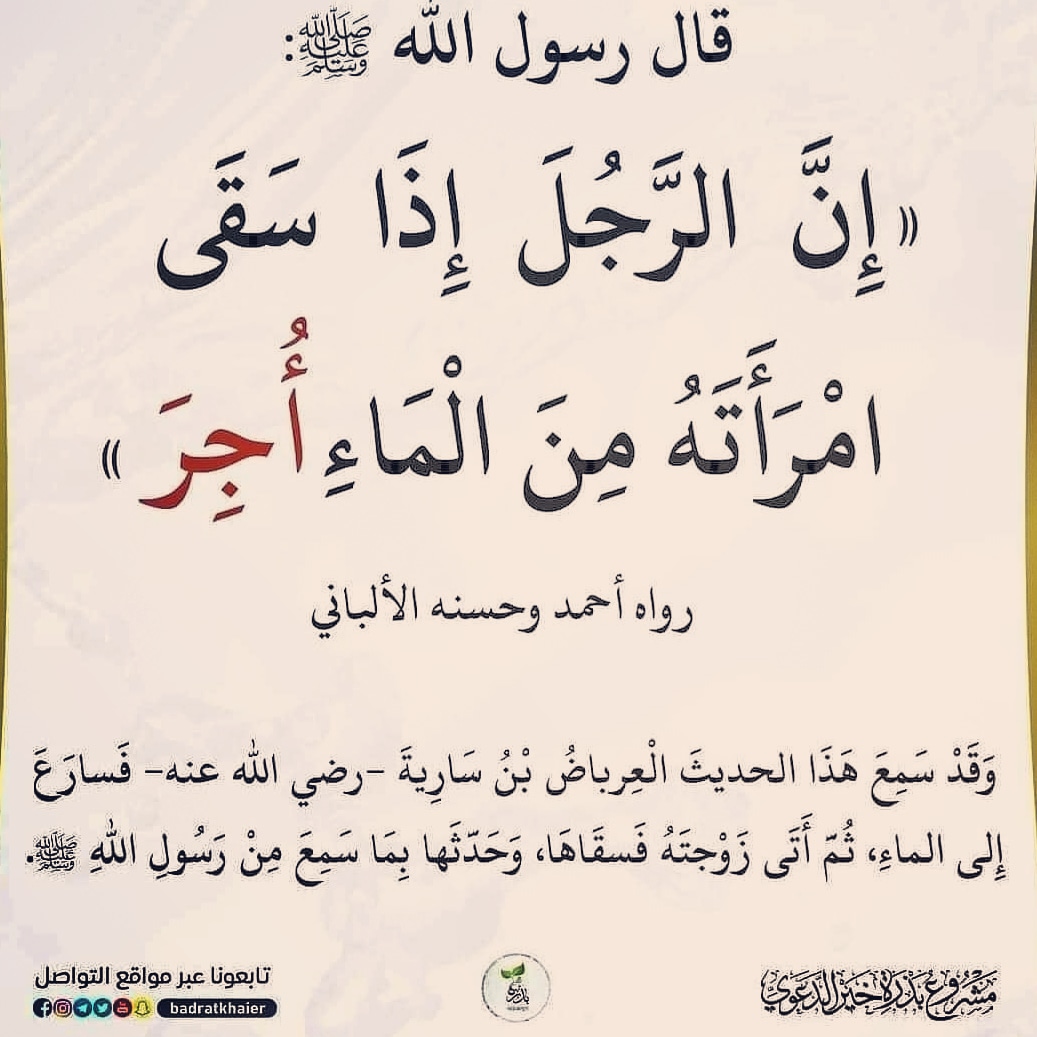 قال رسول الله ﷺ:
«إِنَّ الرَّجُلَ إِذَا سَقَى
امْرَأَتَهُ مِنَ الْمَاءِ أُجِرَ»
رواه أحمد وحسنه الألباني
وَقَدْ سَمِعَ هَذَا الحديثَ الْعِرباضُ بْنُ سَارِيةَ -رضي الله عنه- فَسارَعَ
إِلى الماءِ، ثُمّ أَتَى زَوْجتَهُ فَسقَاهَا، وَحَدّثَها بِمَا سَمِعَ مِنْ رَسُولِ اللهِ ﷺ.
تابعونا عبر مواقع التواصل
badratkhaier
بذرة
مشروع بذرة خير الدعوي